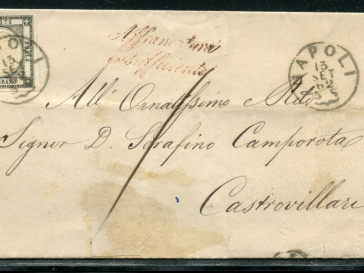 NAPOLI
13
Affrancatura
insufficiente
NAPOLI
13
SET
62
All' Ornatissimo
Signor D. Serafino Camporota
Castrovillari